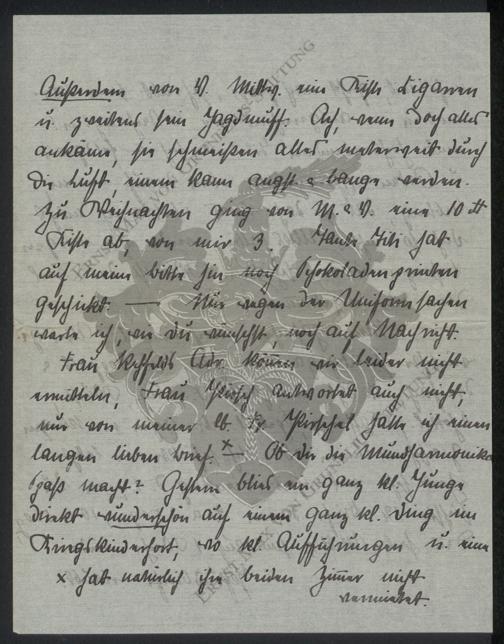 Außerdem von V. Mittw. eine Kiste Zigarren
u. zweitens sein Jagdmuff. Ach, wenn doch alles
ankäme, sie schmeißen alles meterweit durch
die Luft, einem kann angst u. bange werden.
Zu Weihnachten ging von M. u. V. eine 10 ℔
Kiste ab, von mir 3. Tante Titi hat
auf meine Bitte hin noch Schokoladenprinten
geschickt. — Nur wegen der Uniformsachen
warte ich, wie du wünschst, noch auf Nachricht.
Frau Adr. können wir leider nicht
ermitteln, Frau Hirsch antwortet auch nicht,
nur von meiner lb. Fr. Hirschel hatte ich einen
langen lieben Brief. x — Ob dir die Mundharmonika
Spaß macht? Gestern blies ein ganz kl. Junge
direkt wunderschön auf einem ganz kl. Ding im
Kriegskinderhort, wo kl. Aufführungen u. eine
x hat natürlich ihre beiden Zimmer nicht
vermietet.
ERNST VON
STIFTUNG